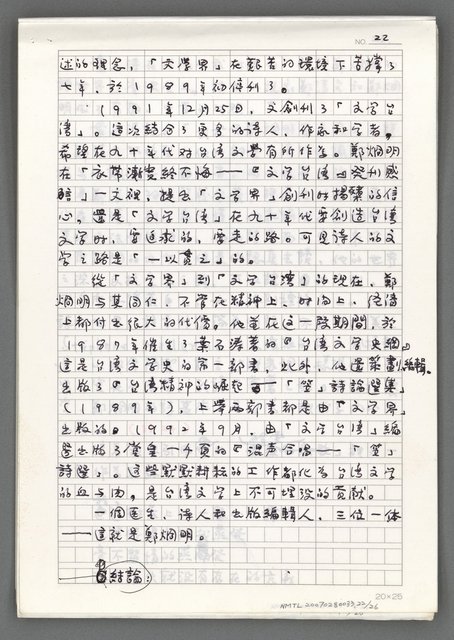 NO. 22
述的理念，「文學界」在艱苦的環境下苦撐了
七年，於1989年初停刊了。
（1991年12月25日，又創刊了「文學台
灣」。這次結合了更多的詩人、作家和學者，
希望在九十年代對台灣文學有所作為。鄭烱明
在「衣帶漸寬終不悔——『文學台灣』發刊感
言」一文裡，提出「文學界」創刊時揭櫫的信
心，還是「文學台灣」在九十年代要創造台灣
文學時，要追求的、要走的路。可見詩人的文
學之路是「一以貫之」的。
從「文學界」到「文學台灣」的現在，鄭
烱明與其同仁，不管在精神上、時間上、經濟
上都付出很大的代價。他並在這一段期間，於
1987年催生了葉石濤著的『台灣文學史綱』
這是台灣文學史的第一部書，此外，他還策劃、編輯、
出版了『台灣精神的崛起——「笠」詩論選集』
（1989年），上舉兩部書都是由「文學界」
出版的。1992年9月，由「文學台灣」編
選出版了 一千頁的『混聲合唱——「笠」
詩選』。這些默默耕耘的工作都化為台灣文學
的血與肉，是台灣文學上不可埋沒的貢獻。
一個醫生、詩人和出版編輯人，三位一體
——這就是鄭烱明。
結論：
20×25
NMTL20070280033,22/26